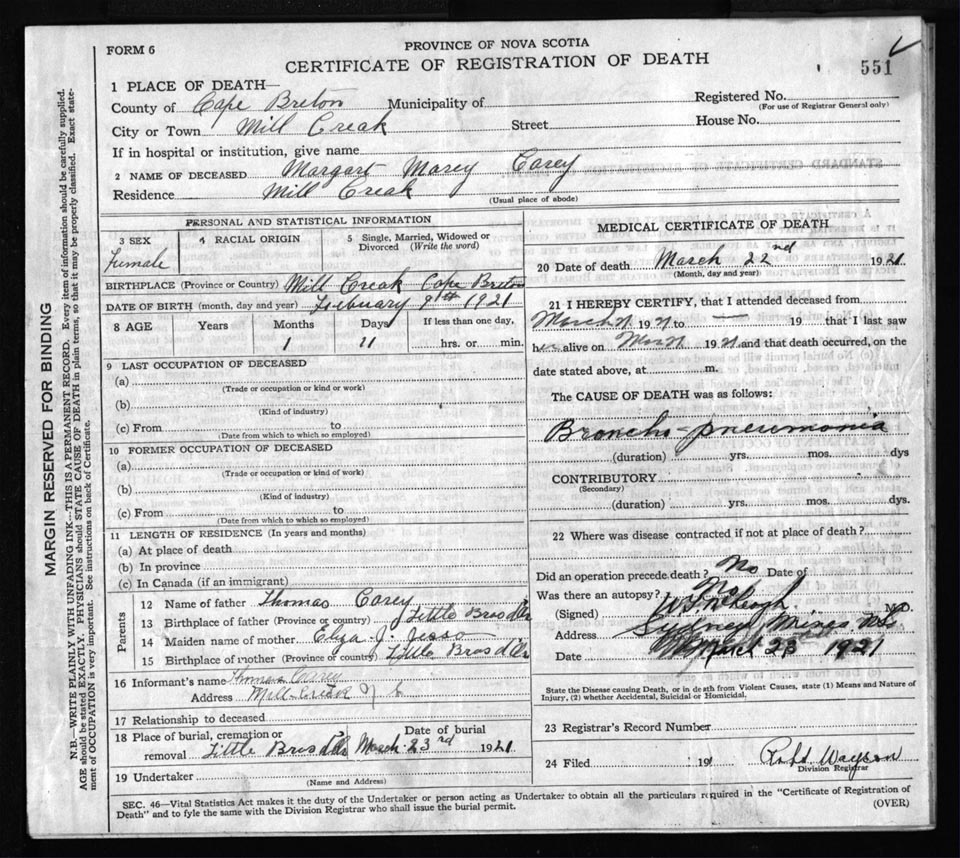 FORM 6
PROVINCE OF NOVA SCOTIA
CERTIFICATE OF REGISTRATION OF DEATH
551
1 PLACE OF DEATH—
County of Cape Breton Municipality of
Registered No.
(For use of Registrar General only)
City or Town Mill Creak Street House No.
If in hospital or institution, give name
2 NAME OF DECEASED Margart Marey Carey
Residence Mill Creak
(Usual place of abode)
PERSONAL AND STATISTICAL INFORMATION
3 SEX 4 RACIAL ORIGIN 5 Single, Married, Widowed or Divorced (Write the word)
Fumale
BIRTHPLACE (Province or Country) Mill Creak Cape Breton
DATE OF BIRTH (month, day and year) Febuary 9th 1921
8 AGE Years Months Days If less than one day,
1 11 hrs. or min.
9 LAST OCCUPATION OF DECEASED
(a)
(Trade or occupation or kind or work)
(b)
(Kind of industry)
(c) From to
(Date from which to which so employed)
10 FORMER OCCUPATION OF DECEASED
(a)
(Trade or occupation or kind of work)
(b)
(Kind of industry)
(c) From to
(Date from which to which so employed)
11 LENGTH OF RESIDENCE (In years and months)
(a) At place of death
(b) In province
(c) In Canada (if an immigrant)
Parents
12 Name of father Thomas Carey
13 Birthplace of father (Province or country) Little Bras d'Or
14 Maiden name of mother Eliza J. Jesso
15 Birthplace of mother (Province or country) Little Bras d'Or
16 Informant's name Thomas Carey
Address Mill Creek
17 Relationship to deceased
18 Place of burial, cremation or removal Little Bras d'Or Date of burial March 23rd 1921
19 Undertaker
(Name and Address)
MEDICAL CERTIFICATE OF DEATH
20 Date of death March 22nd 1921
(Month, day and year)
21 I HEREBY CERTIFY, that I attended deceased from
March 19 21 to — 19 that I last saw
her alive on 19 21 and that death occurred, on the
date stated above, at m.
The CAUSE OF DEATH was as follows:
Broncho-pneumonia
(duration) yrs. mos. dys
CONTRIBUTORY
(Secondary)
(duration) yrs. mos. dys.
22 Where was disease contracted if not at place of death?
Did an operation precede death? No Date of
Was there an autopsy? No
(Signed) M.D
Address Sydney Mines N.S.
Date March 23 1921
State the Disease causing Death, or in death from Violent Causes, state (1) Means and Nature of Injury, (2) whether Accidental, Suicidal or Homicidal.
23 Registrar's Record Number
24 Filed 191 Robt Wayson
Division Registrar
SEC. 46—Vital Statistics Act makes it the duty of the Undertaker or person acting as Undertaker to obtain all the particulars required in the "Certificate of Registration of
Death" and to fyle the same with the Division Registrar who shall issue the burial permit.
(OVER)
MARGIN RESERVED FOR BINDING
N.B.—WRITE PLAINLY WITH UNFADING INK—THIS IS A PERMANENT RECORD. Every item of information should be carefully supplied.
AGE should be stated EXACTLY. PHYSICIANS should STATE CAUSE OF DEATH in plain terms, so that it may be properly classified. Exact state-
ment of OCCUPATION is very important. See instructions on back of Certificate.